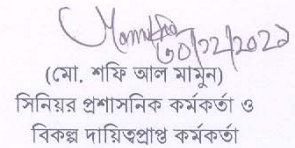 ৩০/১১/২০২১
(মো. শফি আল মামুন)
সিনিয়র প্রশাসনিক কর্মকর্তা ও
বিকল্প দায়িত্বপ্রাপ্ত কর্মকর্তা